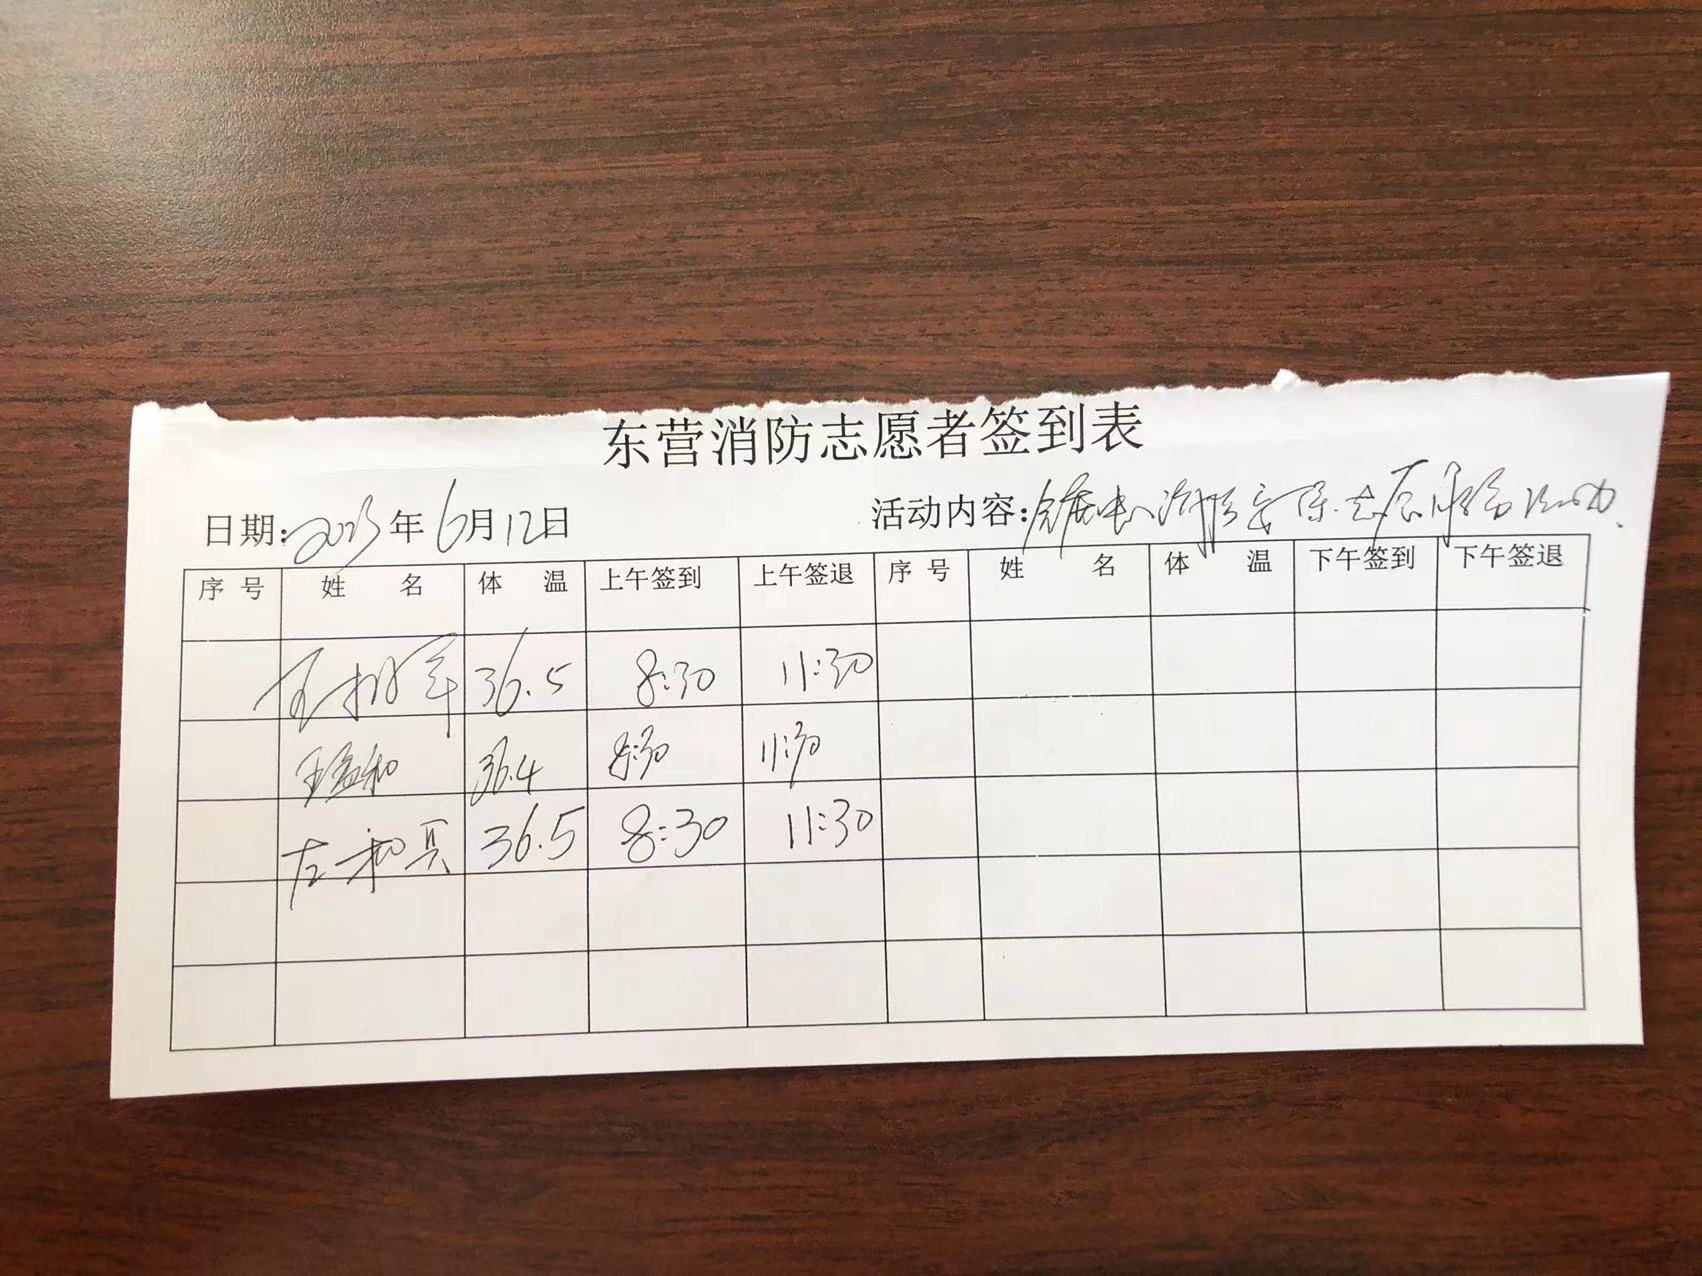 东营消防志愿者签到表
日期:2023年6月12日 活动内容:消防安保志愿服务活动
序号 姓名 体温 上午签到 上午签退 序号 姓名 体温 下午签到 下午签退
36.5 8:30 11:30
王益和 36.4 8:30 11:30
左和具 36.5 8:30 11:30